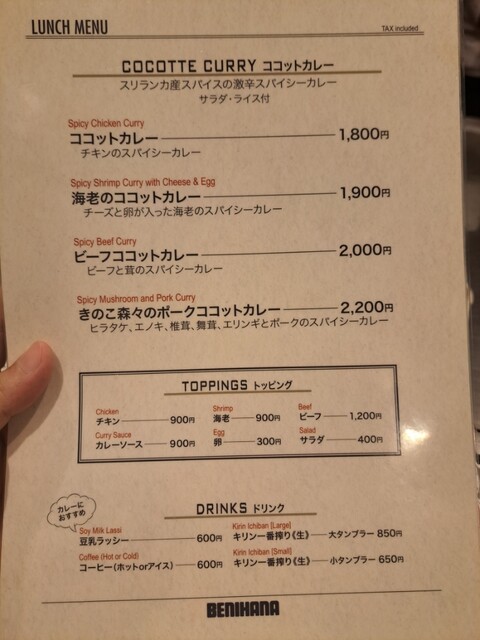 LUNCH MENU
TAX included
COCOTTE CURRY ココットカレー
スリランカ産スパイスの激辛スパイシーカレー
サラダ・ライス付
Spicy Chicken Curry
ココットカレー 1,800円
チキンのスパイシーカレー
Spicy Shrimp Curry with Cheese & Egg
海老のココットカレー 1,900円
チーズと卵が入った海老のスパイシーカレー
Spicy Beef Curry
ビーフココットカレー 2,000円
ビーフと茸のスパイシーカレー
Spicy Mushroom and Pork Curry
きのこ森々のポークココットカレー 2,200円
ヒラタケ、エノキ、椎茸、舞茸、エリンギとポークのスパイシーカレー
TOPPINGS トッピング
Chicken Shrimp Beef
チキン 900円 海老 900円 ビーフ 1,200円
Curry Sauce Egg Salad
カレーソース 900円 卵 300円 サラダ 400円
カレーに
おすすめ
DRINKS ドリンク
Soy Milk Lassi Kirin Ichiban [Large]
豆乳ラッシー 600円 キリン一番搾り《生》 大タンブラー 850円
Coffee (Hot or Cold) Kirin Ichiban [Small]
コーヒー(ホットorアイス) 600円 キリン一番搾り《生》 小タンブラー 650円
BENIHANA